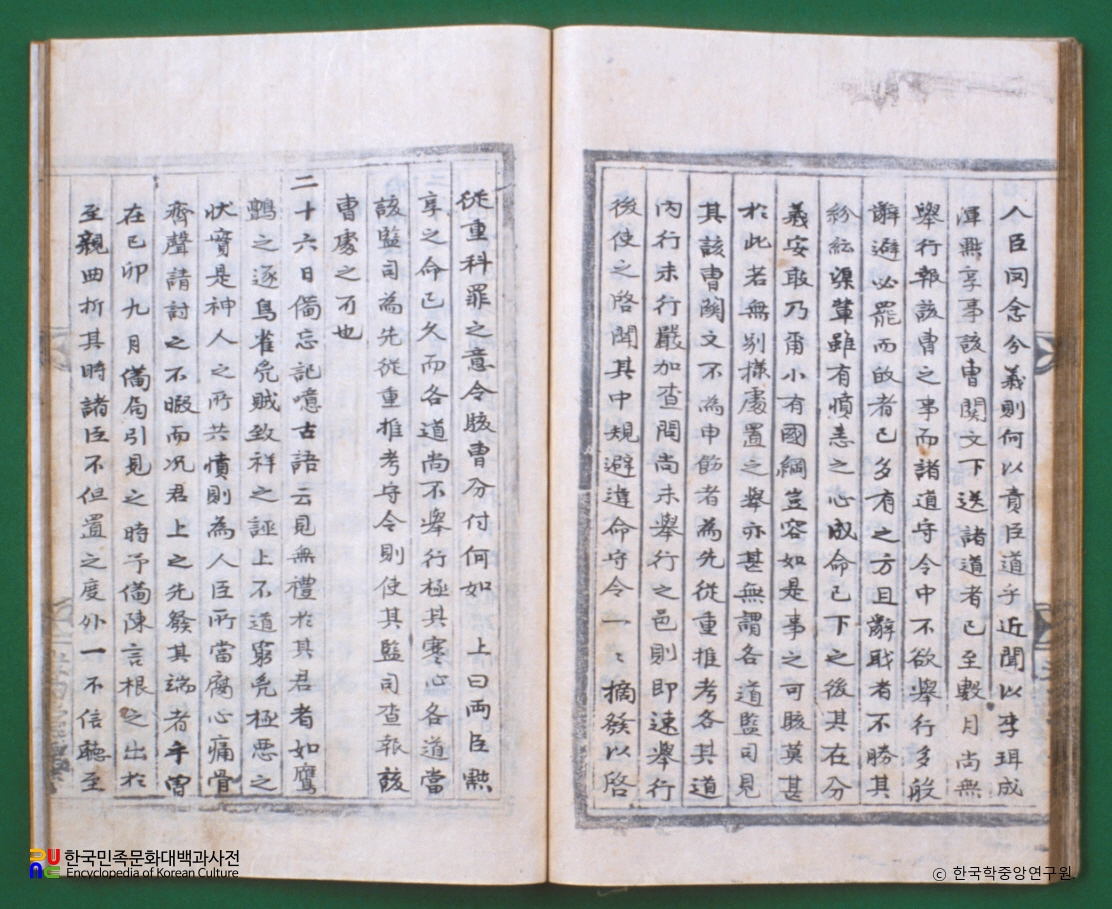 人臣同念分義則何以責臣道乎近聞以李珥成
渾黜享事該曹關文下送諸道者已至數月尚無
擧行報該曹之事而諸道守令中不欲擧行多般
辭避必罷而啟者已多有之方且辭職者不勝其
紛紜渠輩雖有憤恚之心成命已下之後其在分
義安敢乃爾小有國綱豈容如是事之可駭莫甚
於此若無別樣處置之擧亦甚無謂各道監司見
其該曹關文不為申飭者為先從重推考各其道
內行未行嚴加查問尚未擧行之邑則即速擧行
後使之啓聞其中規避違命守令一〻摘發以啓
從重科罪之意令該曹分付何如 上曰兩臣黜
享之命已久而各道尚不擧行極其寒心各道當
該監司為先從重推考守令則使其監司查報該
曹處之可也
二十六日備忘記噫古語云見無禮於其君者如鷹
鸇之逐鳥雀兇賊致祥之誣上不道窮兇極惡之
狀實是神人之所共憤則為人臣所當腐心痛骨
齊聲請討之不暇而况君上之先發其端者乎曾
在己卯九月備局引見之時予備陳言根之出於
至親曲折其時諸臣不但置之度外一不信聽至
한국민족문화대백과사전
Encyclopedia of Korean Culture
ⓒ 한국학중앙연구원